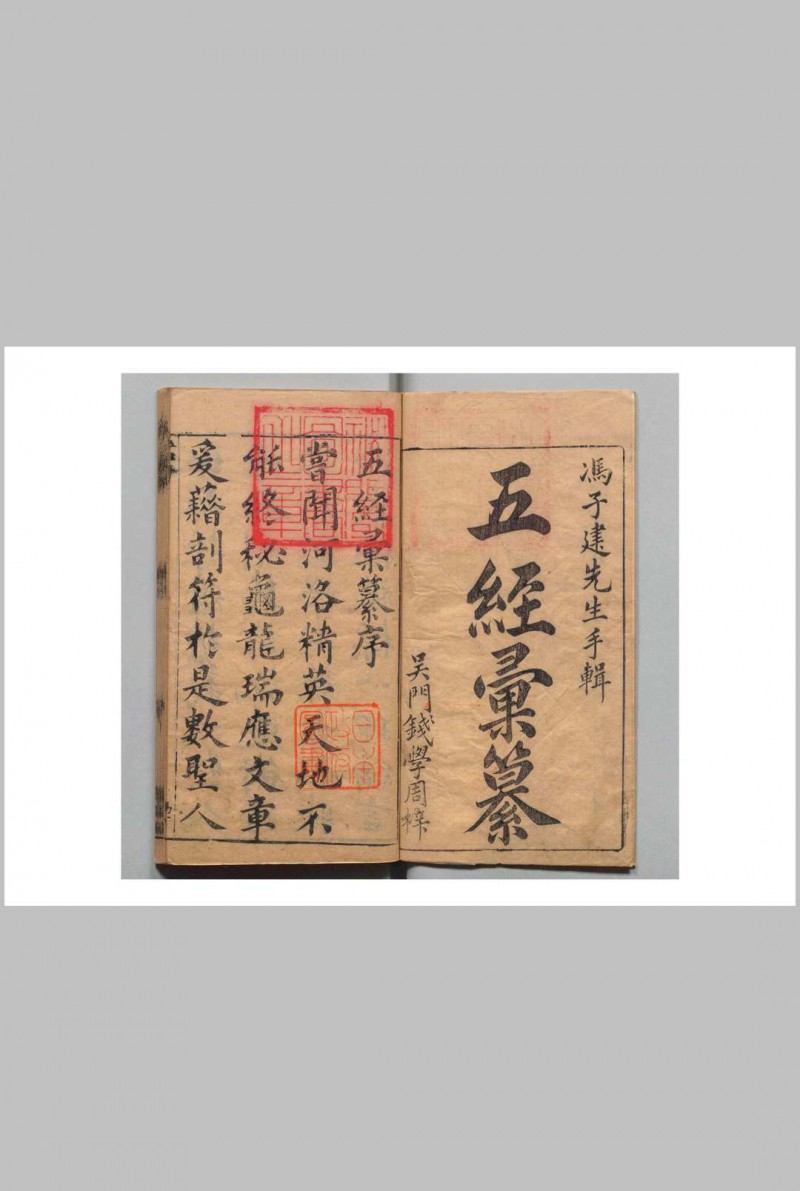 馮子建先生手輯
五經彙纂
吳門錢學周梓
五經彙纂序
嘗聞河洛精英天地不
能終秘龜龍瑞應文章
爰藉剖符於是數聖人